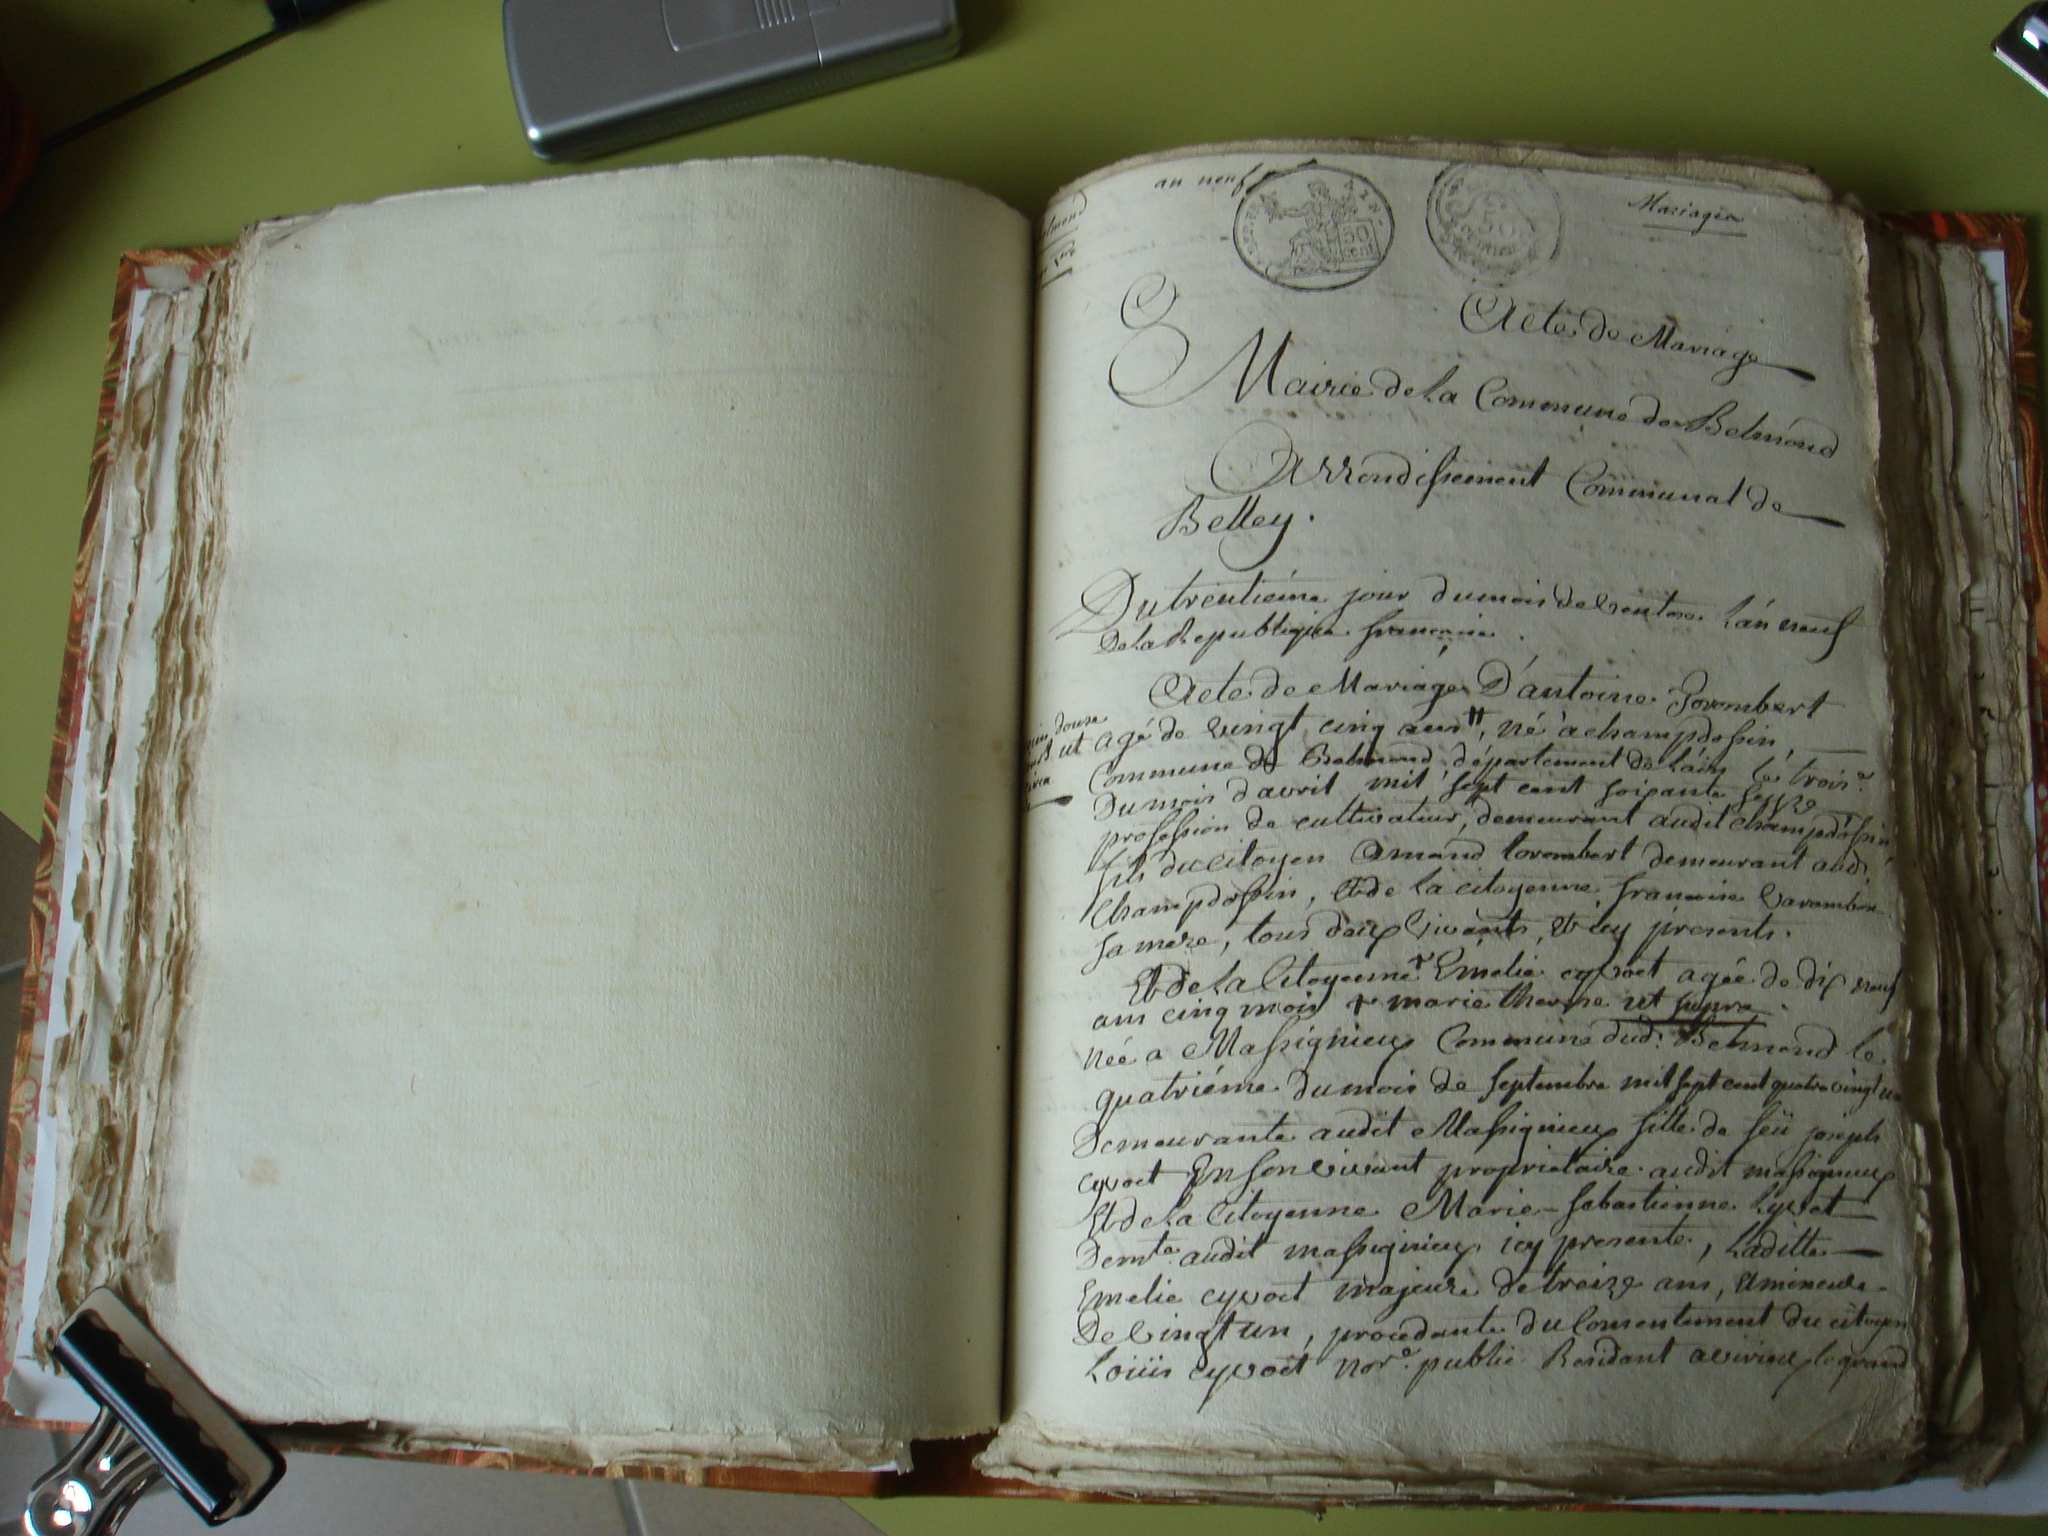 an neuf
Mariages
50
Acte de Mariage
Mairie de la Commune de Belmond
Arrondissement Communal de
Belley.
Du trentiéme jour du mois de Ventose L'an neuf
De la Republique francaise.
Acte de Mariage D'antoine
agé de vingt cinq ans, né à champdossin,
Commune de Belmond département de L'ain le trois.e
Du mois d'avril mil sept cent soixante seize
profession de cultivateur, demeurant audit champdossin
fils du citoyen demeurant aud.
Champdossin, Et de la citoyenne francoise
sa mere, tous deux vivants, et icy présents.
Et de La Citoyenne + Emelie cyvoct agée de dix neuf
ans cinq mois + marie therese ut supra.
Née a Massignieux Commune dud. Belmond le
quatriéme du mois de septembre mil sept cent quatre vingt un
Demeurante audit Massignieux fille de feü joseph
cyvoct En son vivant proprietaire audit massignieux
Et de La Citoyenne Marie-sebastienne
Demte. audit massignieux icy presente, Laditte
Emelie cyvoct majeure de treize ans, et mineure
De vingt un, procédante du Consentement du citoyen
Loüis cyvoct nore. public Residant a virieux le grand
douze
ut